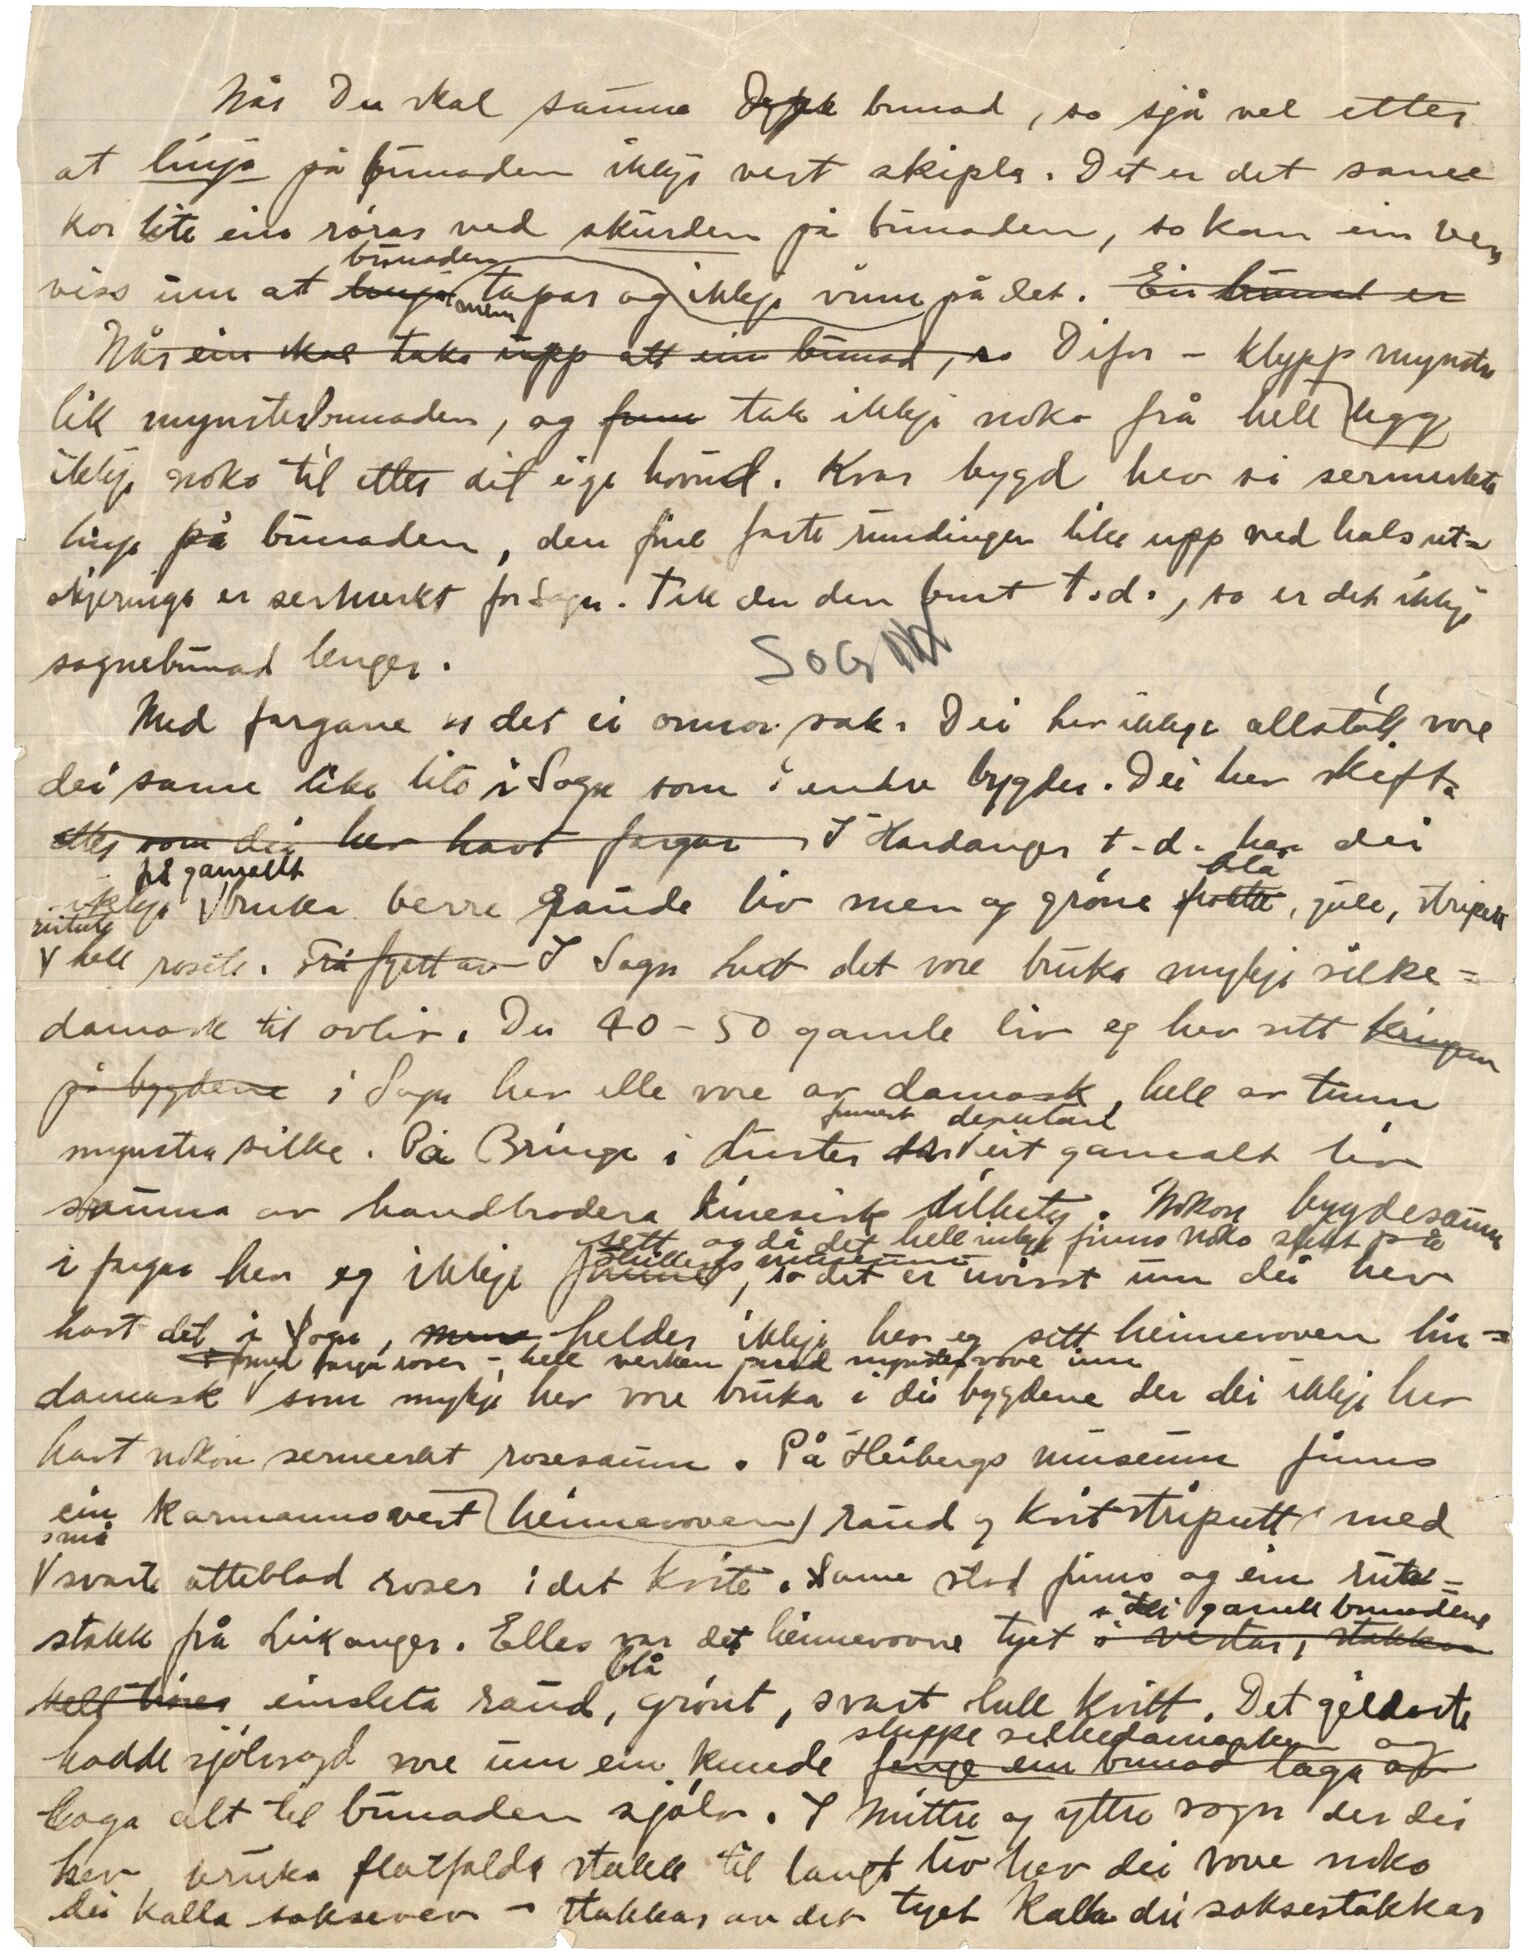 Når Du skal sauma bunad, so sjå vel etter
at linja på bunaden ikkje vert skipla. Det er det same
kor lite ein røras ved skurden på bunaden, so kan ein vera
bunaden
viss um at linja tapar og ikkje vinn på det. Ein bunad er
men
Når ein skal taka upp att ein bunad, so Difor - klypp mynstr
lik mynsterbunaden, og tak ikkje noko frå hell legg
ikkje noko til etter dit eige hovud. Kvar bygd hev si sermerkte
linje på bunaden, den fine faste rundingen like upp ved halsut-
skjeringa er sermerkt for Sogn. Tek du den burt t.d., so er det ikkje
sognebunad lenger.
SOGN
Med fargane er det ei onnor sak. Dei hev ikkje allstøtt vore
dei same like lite i Sogn som i andre bygder. Dei hev skifta
etter som dei hev havt fargar I Hardanger t.d. hev dei
på gamalt
blå
ikkje bruka berre raude liv men og grøne, gule, stripete
rutute
hell rosete. I Sogn hev det vore bruka mykje silke-
damask til ovliv. Dei 40-50 gamle liv eg hev sett kringum
på bygdene i Sogn hev alle vore av damask, hell av tunn
mynstra silke. På Bringe i Luster eit gamalt liv
sauma av handbrodera kinesisk silkety. Nokon bygdesaum
sett og då det hell ikkje finns noko slikt på
Heibergs museum
i fargar hev eg ikkje funne, so det er uvisst um dei hev
havt det i Sogn, men helder ikkje hev eg sett heimevoven lin-
med farga roser - hell verken med mynstervove inn
damask som mykje hev vore bruka i dei bygdene der dei ikkje hev
havt nokon sermerkt rosesaum. På Heibergs museum finns
ein karmannsvest heimevoven raud og kvit striputt med
små
svarte åtteblad roser i det kvite. Same stad finns og ein rute-
i dei gamle bunadene
stakk frå Leikanger. Elles var det heimevovne tyet i vestar, stakkar
blå
hell livei einsleta raud, grønt, svart hell kvitt. Det gildaste
sleppe silkedamasken og
hadde sjølvsagd vore um ein kunde laga av
laga alt til bunaden sjølv. I Mittre og yttre sogn der dei
hev bruka flatfalda stakk til langt liv hev dei vove noko
dei kalla soksevev - stakkar av det tyet kalla dei soksestakkar